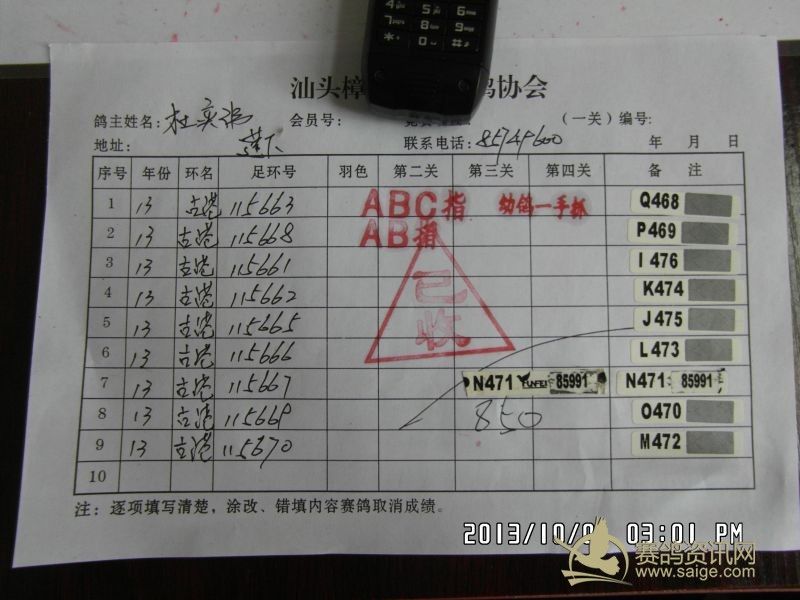 汕头樟 鸽协会
鸽主姓名: 会员号: （一关）编号:
地址: 联系电话: 85749600 年 月 日
序号 年份 环名 足环号 羽色 第二关 第三关 第四关 备 注
1 13 古港 115663 ABC指 幼鸽一手抓 Q468
2 13 古港 115668 AB指 P469
3 13 古港 115661 I 476
4 13 古港 115662 已收 K474
5 13 古港 115665 J475
6 13 古港 115666 L473
7 13 古港 115667 N471 85991 N471 85991
8 13 古港 115669 850 O470
9 13 古港 115670 M472
10
注：逐项填写清楚，涂改、错填内容赛鸽取消成绩。
2013/10/ 03:01 PM
赛鸽资讯网
www.saige.com
4 5 6
7 8 9
* 0 #